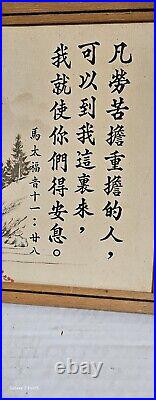 凡勞苦擔重擔的人，
可以到我這裏來，
我就使你們得安息。
馬太福音十一：廿八